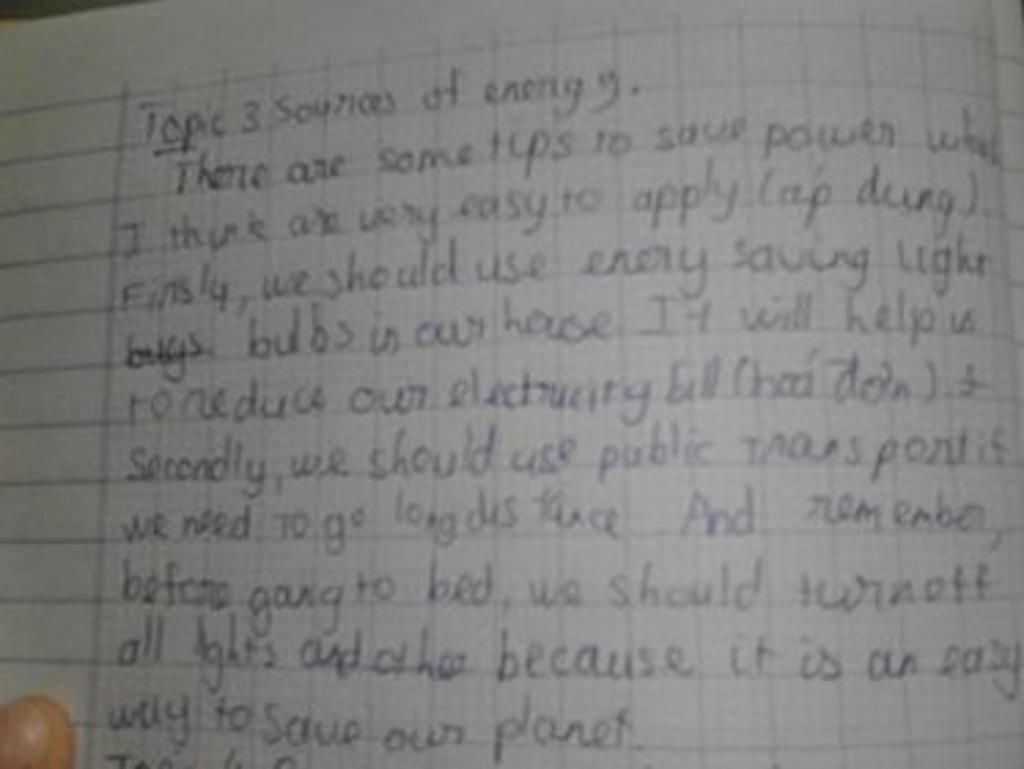 Topic 3 Sources of energy.
There are some tips to save power what
I think are very easy to apply (áp dụng).
Firsly, we should use enery saving light
bulbs in our house It will help us
to reduce our electricity bill (hoá đơn)
Secondly, we should use public transport if
we need to go long distance And remember,
before going to bed, we should turn off
all lights and other because it is an easy
way to save our planet.